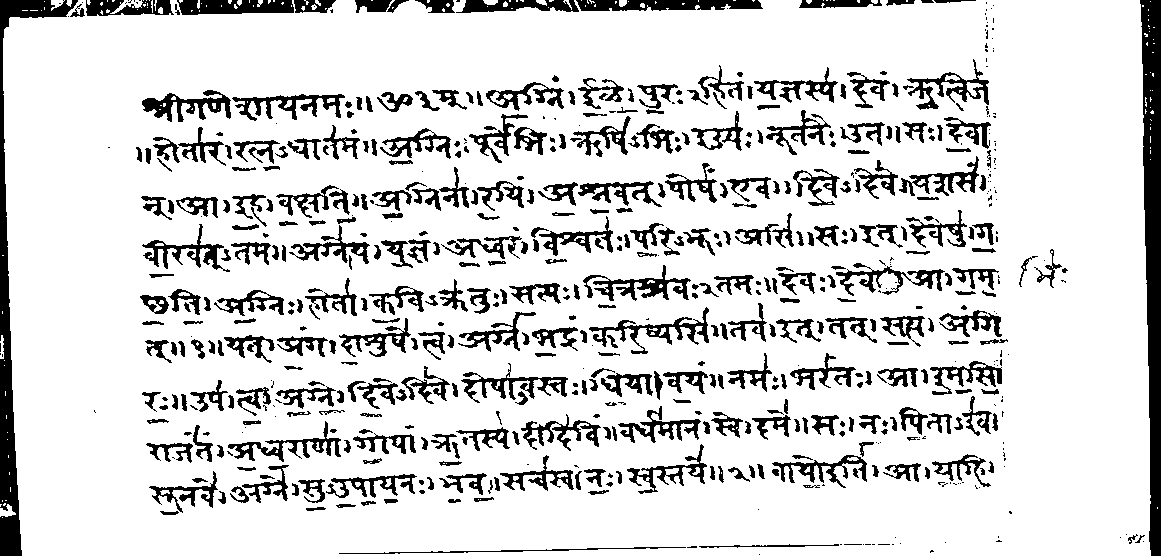 श्रीगणेशायनमः॥ ॐ३म्॥ अ॒ग्निं। ई॒ळे॒। पु॒रःऽहि॑तं। य॒ज्ञस्य॑। दे॒वं। ऋ॒त्विजं॑
॥होता॑रं। र॒त्न॒ऽधात॑मं॥ अ॒ग्निः। पूर्वे॑भिः। ऋषि॑ऽभिः। ईड्यः॑। नूत॑नैः। उ॒त॥ सः। दे॒वा
न्। आ। इ॒ह। व॒क्ष॒ति॒॥ अ॒ग्निना॑। र॒यिं। अ॒श्न॒व॒त्। पोषं॑। ए॒व। दि॒वेऽदि॑वे॥ य॒शसं॑
वी॒रव॑त्ऽतमं॥ अग्ने॑। यं। य॒ज्ञं। अ॒ध्व॒रं। वि॒श्वतः॑। प॒रि॒ऽभूः। असि॑॥ सः। इत्। दे॒वेषु॑। ग॒
च्छ॒ति॒। अ॒ग्निः। होता॑। क॒विऽक्र॑तुः। स॒त्यः। चि॒त्रश्र॑वःऽतमः॥ दे॒वः। दे॒वे आ। ग॒म॒ भिः॑
त्॥१॥ यत्। अं॒ग। दा॒शुषे॑। त्वं। अग्ने॑। भ॒द्रं। क॒रि॒ष्यसि॑॥ तव॑। इत्। तत्। स॒त्यं। अं॒गि॒
रः॒॥ उप॑। त्वा॒। अ॒ग्ने॒। दि॒वेऽदि॑वे। दोषा॑ऽवस्तः। धि॒या। व॒यं॥ नमः॑। भरं॑तः। आ। इ॒म॒सि॒॥
राजं॑तं। अ॒ध्व॒राणां॑। गो॒पां। ऋ॒तस्य॑। दीदि॑विं॥ वर्ध॑मानं। स्वे। दमे॑॥ सः। नः॒। पि॒ताऽइ॑व।
सू॒नवे॑। अग्ने॑। सु॒ऽउ॒पा॒य॒नः। भ॒व॒॥ सच॑स्व। नः॒। स्व॒स्तये॑॥२॥ वायो॒ इति॑। आ। या॒हि॒।